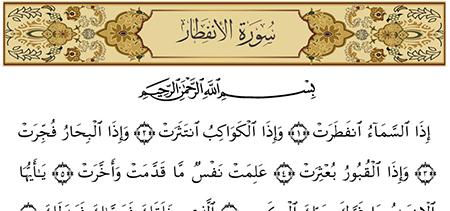 سُورَةُ الانفِطَار
بِسْمِ ٱللَّهِ ٱلرَّحْمَٰنِ ٱلرَّحِيمِ
إِذَا ٱلسَّمَآءُ ٱنفَطَرَتْ ﴿١﴾ وَإِذَا ٱلْكَوَاكِبُ ٱنتَثَرَتْ ﴿٢﴾ وَإِذَا ٱلْبِحَارُ فُجِّرَتْ
﴿٣﴾ وَإِذَا ٱلْقُبُورُ بُعْثِرَتْ ﴿٤﴾ عَلِمَتْ نَفْسٌ مَّا قَدَّمَتْ وَأَخَّرَتْ ﴿٥﴾ يَٰٓأَيُّهَا